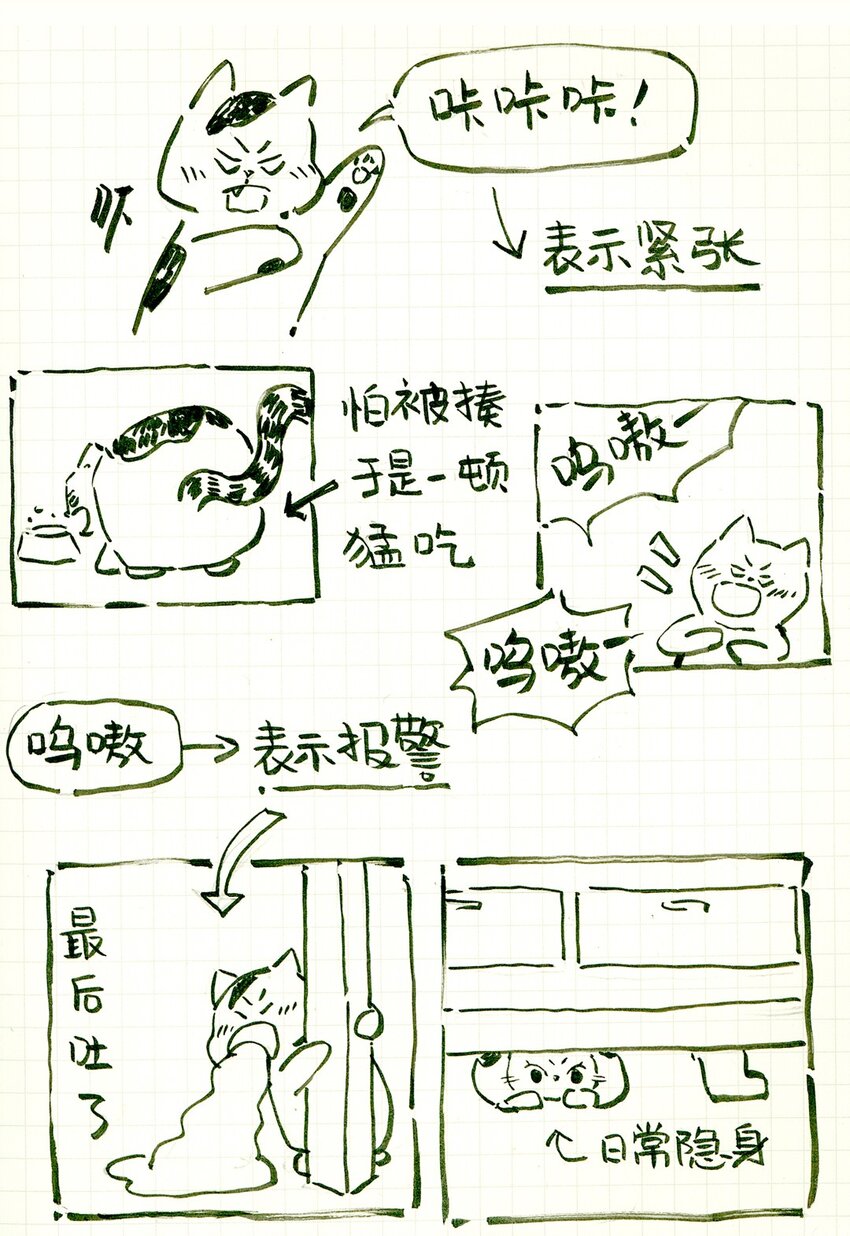 咔咔咔!
吓
表示紧张
怕被揍
于是一顿
猛吃
呜嗷
呜嗷
呜嗷
表示报警
最后吐了
日常隐身